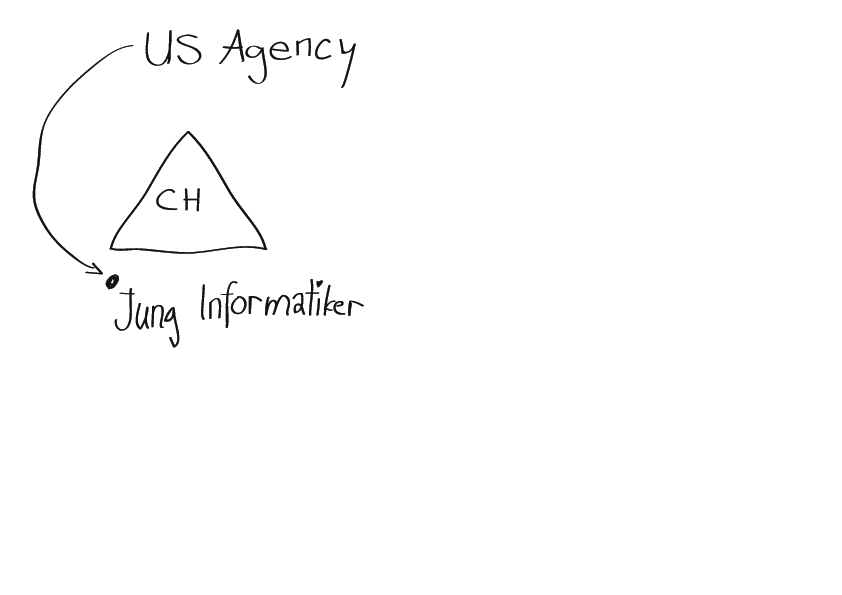 US Agency
CH
Jung Informatiker